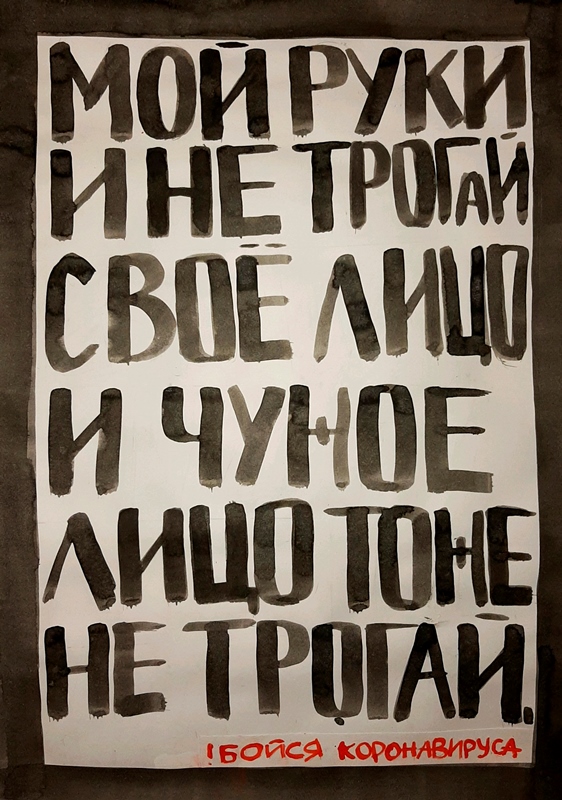 МОЙ РУКИ
И НЕ ТРОГАЙ
СВОЁ ЛИЦО
И ЧУЖОЕ
ЛИЦО ТОЖЕ
НЕ ТРОГАЙ.
!БОЙСЯ КОРОНАВИРУСА